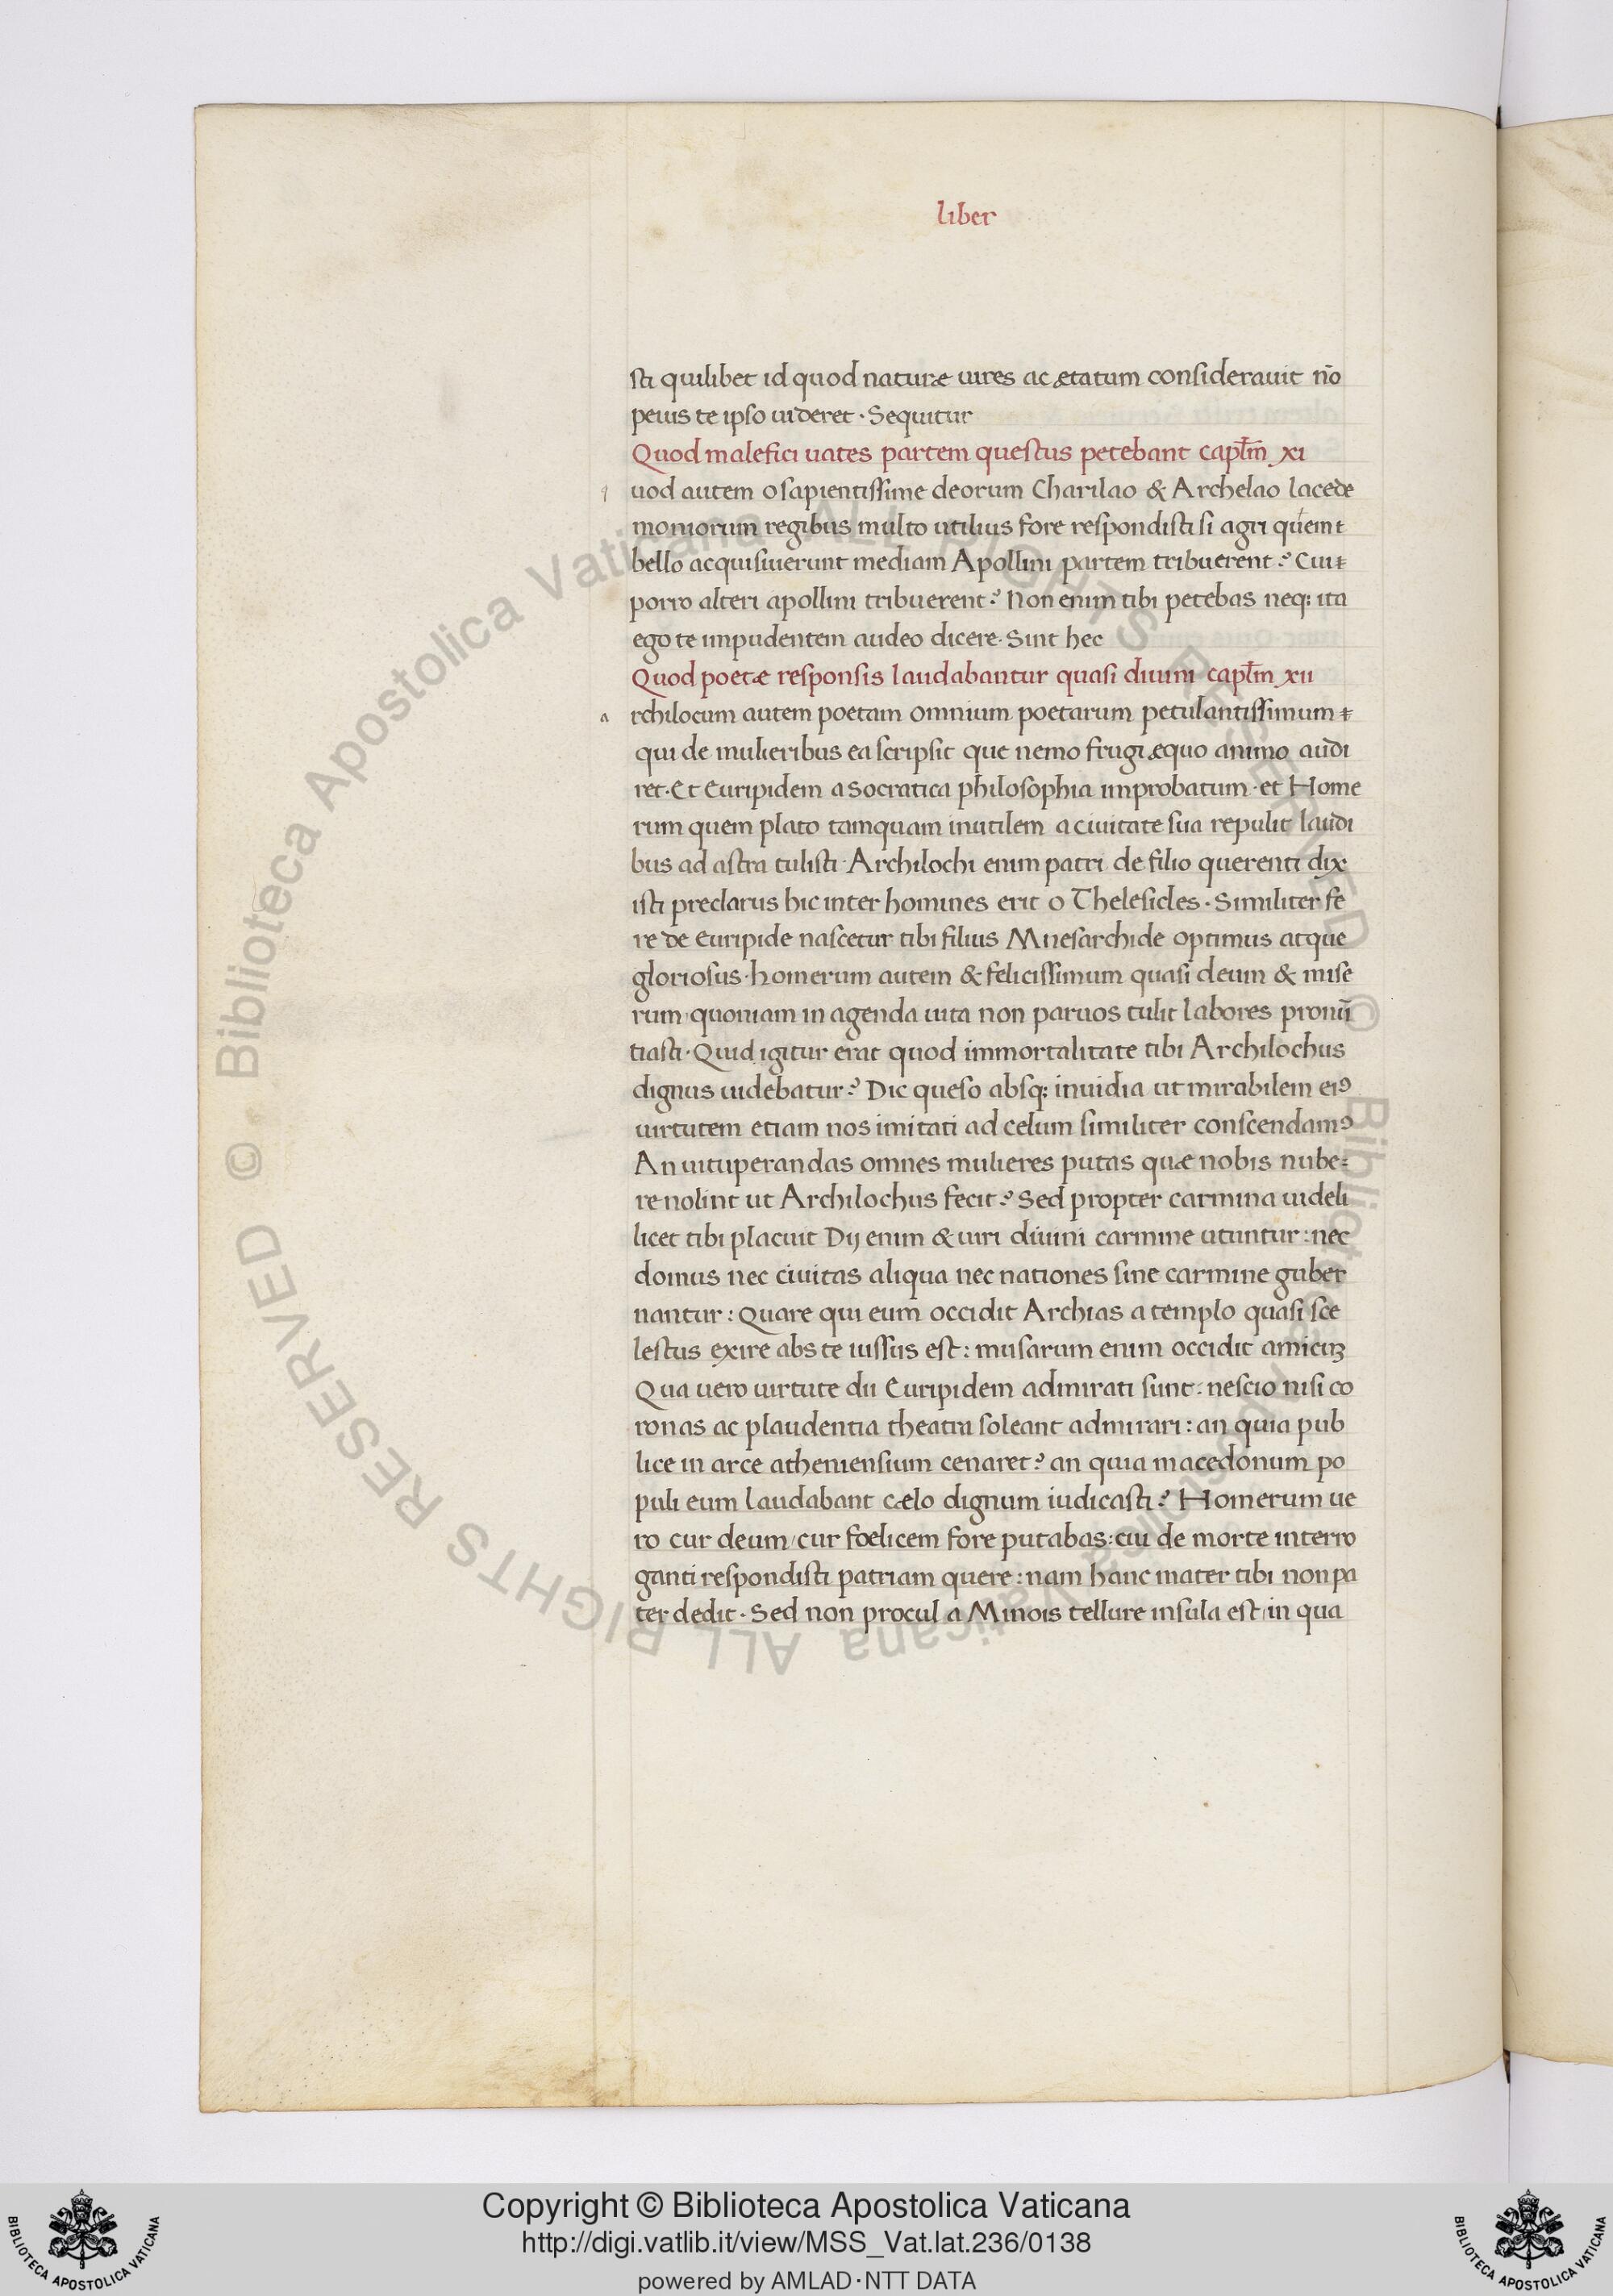 liber
sti quilibet id quod naturæ uires ac ætatum considerauit nō
peius te ipso uideret · Sequitur
Quod malefici uates partem questus petebant capłm xi
q uod autem o sapientissime deorum Charilao & Archelao lacede
moniorum regibus multo utilius fore respondisti si agri quem
bello acquisiuerunt mediam Apollini partem tribuerent? Cui
porro alteri apollini tribuerent? Non enim tibi petebas neq; ita
ego te impudentem audeo dicere· Sint hec
Quod poetæ responsis laudabantur quasi diuini capłm xii
a rchilocum autem poetam omnium poetarum petulantissimum
qui de mulieribus ea scripsit que nemo frugi æquo animo audi
ret· Et Euripidem a Socratica philosophia improbatum · et Home
rum quem plato tamquam inutilem a ciuitate sua repulit laudi
bus ad astra tulisti · Archilochi enim patri de filio querenti dix
isti preclarus hic inter homines erit o Thelesicles · Similiter fe
re de Euripide nascetur tibi filius Mnesarchide optimus atque
gloriosus · homerum autem & felicissimum quasi deum & mise
rum quoniam in agenda uita non paruos tulit labores pronū
tiasti · Quid igitur erat quod immortalitate tibi Archilochus
dignus uidebatur? Dic queso absq; inuidia ut mirabilem eiꝰ
uirtutem etiam nos imitati ad celum similiter conscendamꝰ
An uituperandas omnes mulieres putas quæ nobis nube=
re nolint ut Archilochus fecit? Sed propter carmina uideli
licet tibi placuit Dij enim & uiri diuini carmine utuntur : nec
domus nec ciuitas aliqua nec nationes sine carmine guber
nantur : Quare qui eum occidit Archias a templo quasi sce
lestus exire abs te iussus est : musarum enim occidit amicuꝫ
Qua uero uirtute dii Euripidem admirati sunt : nescio nisi co
ronas ac plaudentia theatra soleant admirari : an quia pub
lice in arce atheniensium cenaret? an quia macedonum po
puli eum laudabant cælo dignum iudicasti? Homerum ue
ro cur deum / cur foelicem fore putabas : cui de morte interro
ganti respondisti patriam quere : nam hanc mater tibi non pa
ter dedit · Sed non procul a Minois tellure insula est / in qua
© Biblioteca Apostolica Vaticana ALL RIGHTS RESERVED © Biblioteca Apostolica Vaticana ALL RIGHTS RESERVED
Copyright © Biblioteca Apostolica Vaticana
http://digi.vatlib.it/view/MSS_Vat.lat.236/0138
powered by AMLAD·NTT DATA
BIBLIOTECA APOSTOLICA VATICANA
BIBLIOTECA APOSTOLICA VATICANA